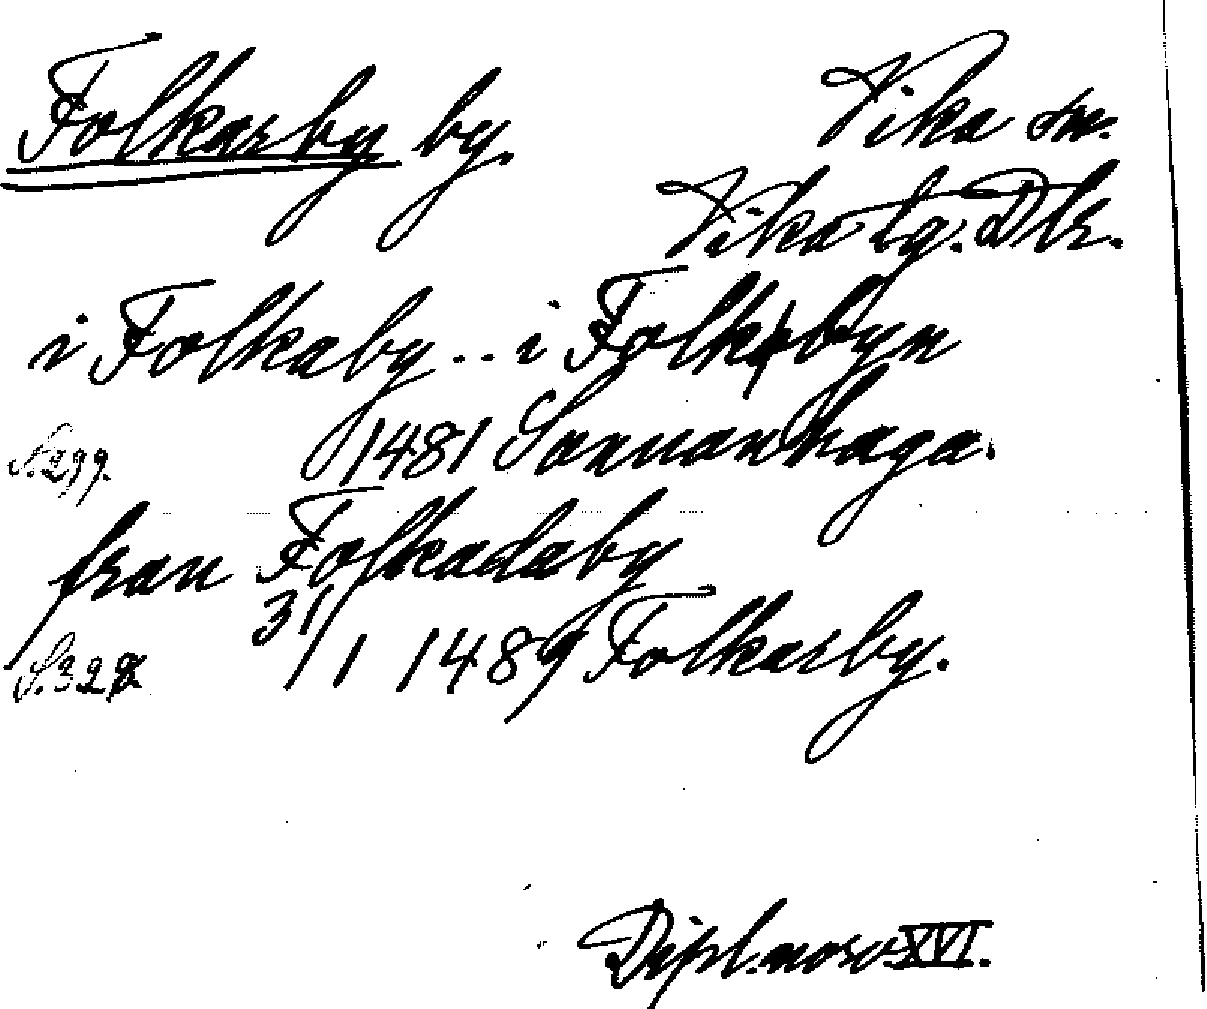 Folkarby by. Vika sn.
Vika tg. Dlr.
i Folkaby .. i Folkabyn
S. 299. 1481 Sunnanhaga.
fran Folkadaby
S. 328 31/1 1489 Folkarby.
Dipl. norv. XVI.